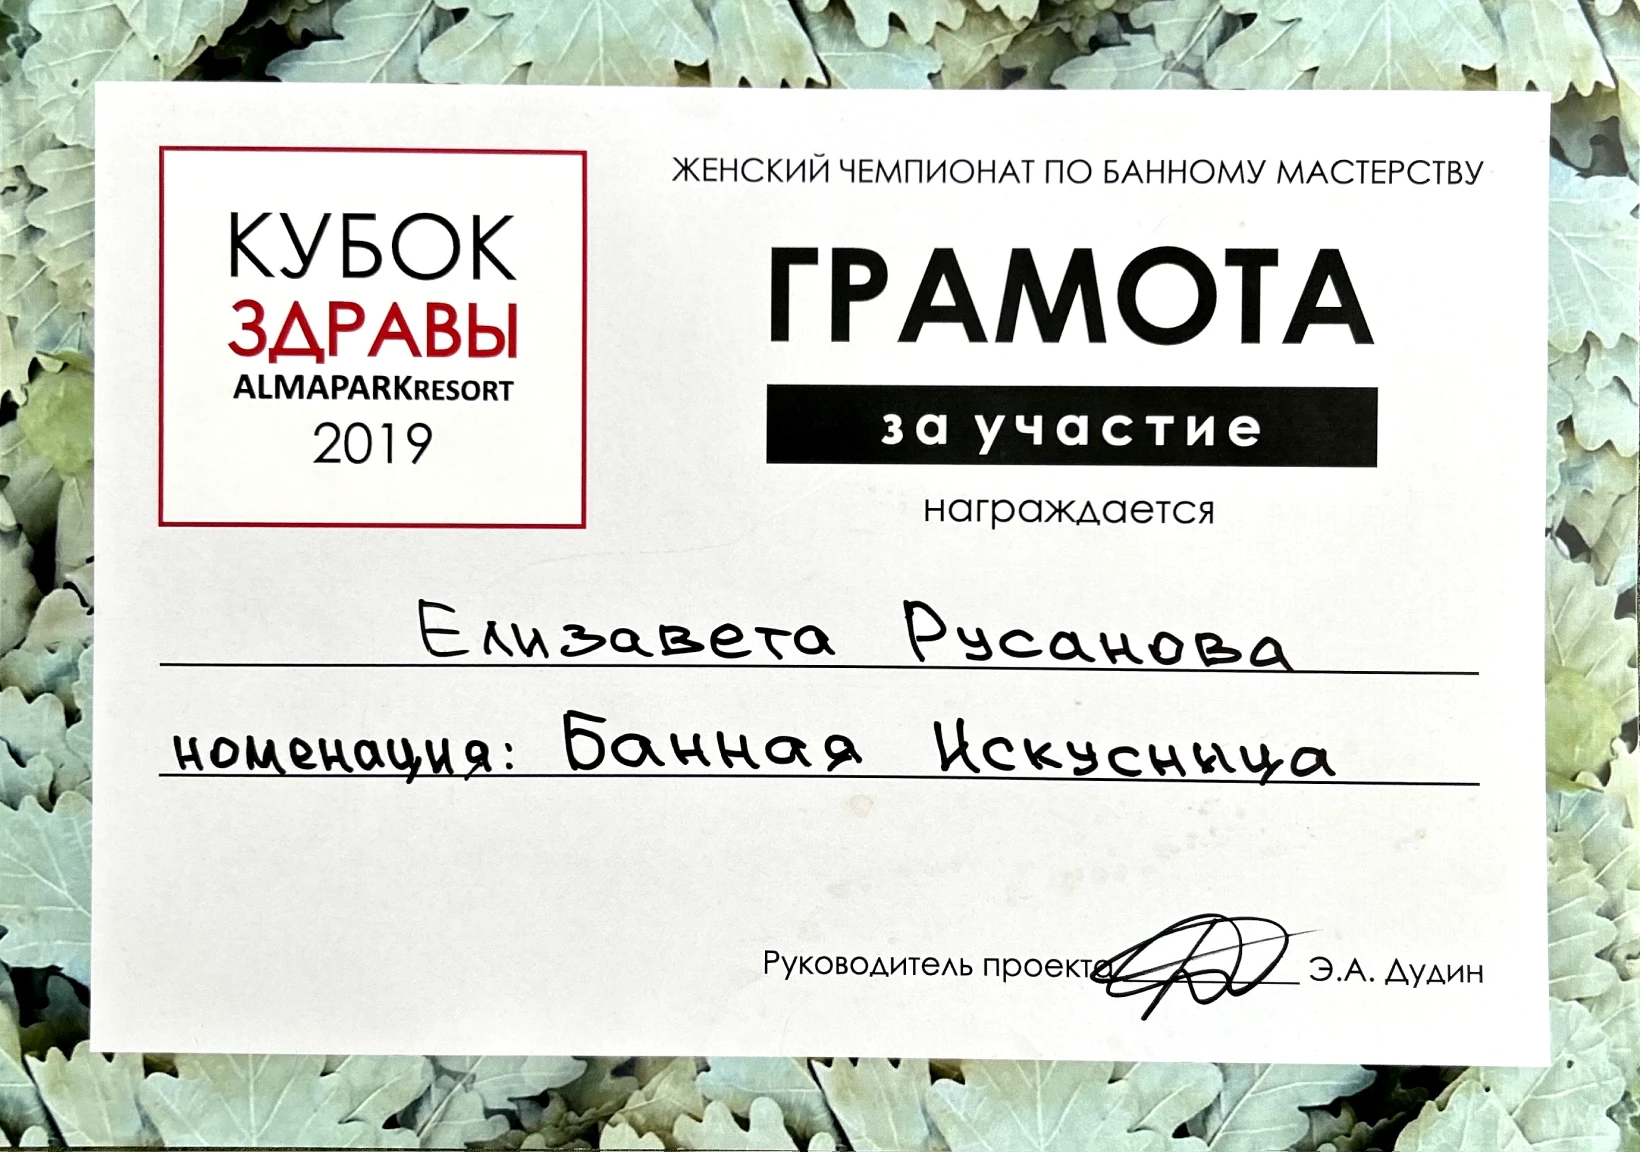 КУБОК
ЗДРАВЫ
ALMAPARKRESORT
2019
ЖЕНСКИЙ ЧЕМПИОНАТ ПО БАННОМУ МАСТЕРСТВУ
ГРАМОТА
за участие
награждается
Елизавета Русанова
номенация: Банная Искусница
Руководитель проекта Э.А. Дудин